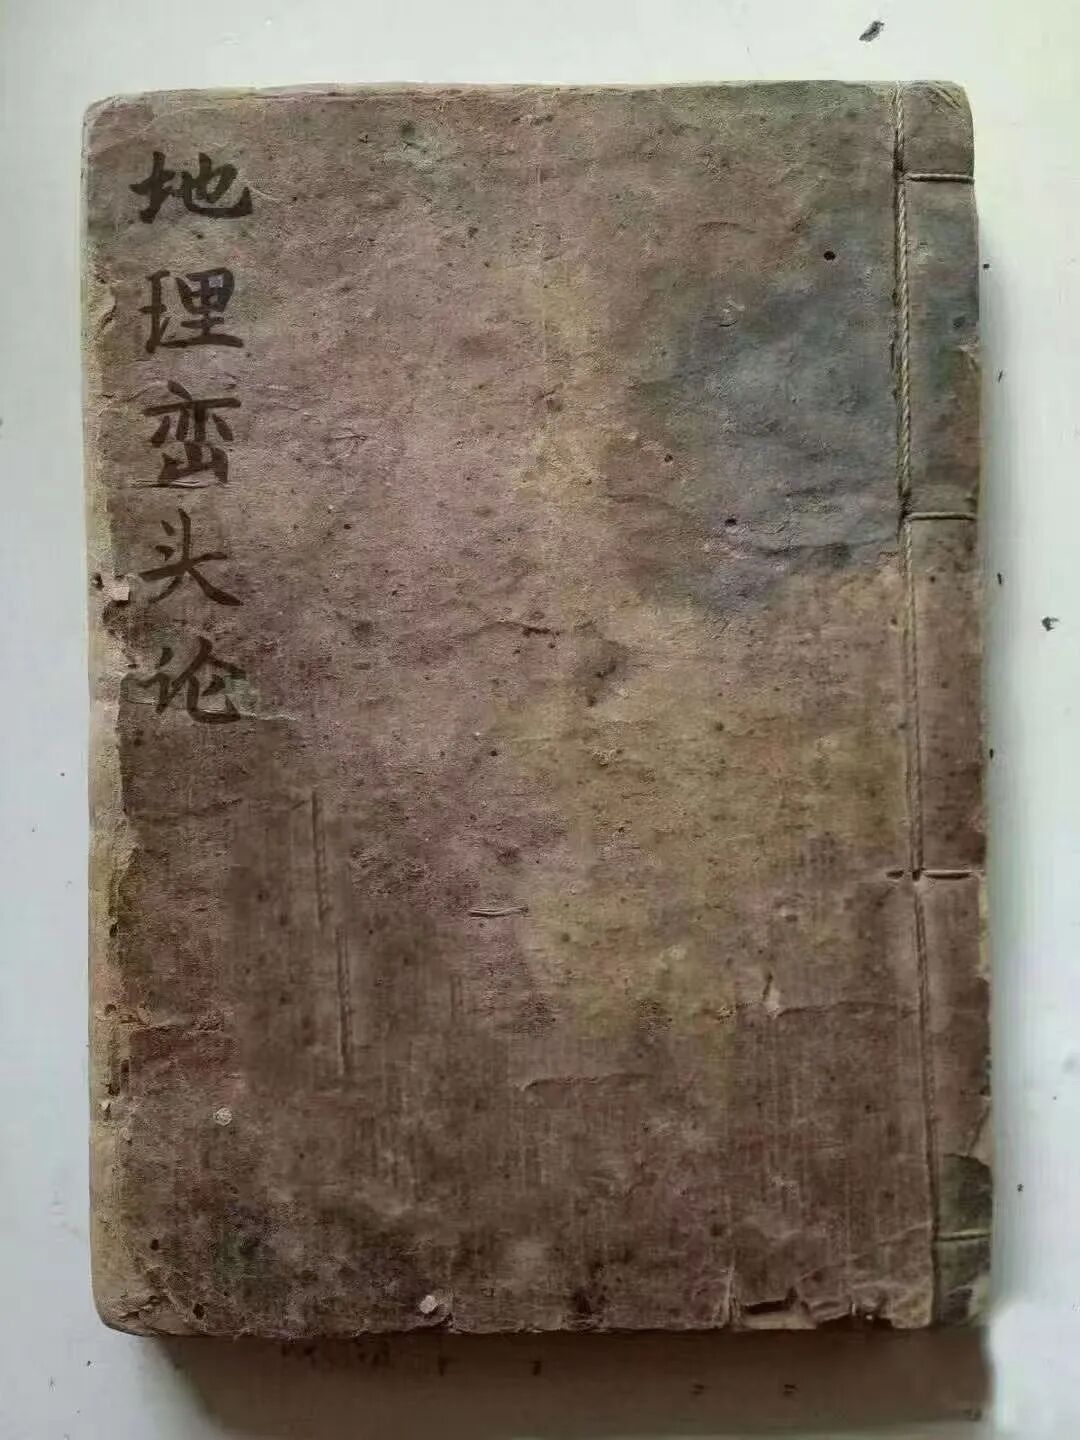 地理峦头论